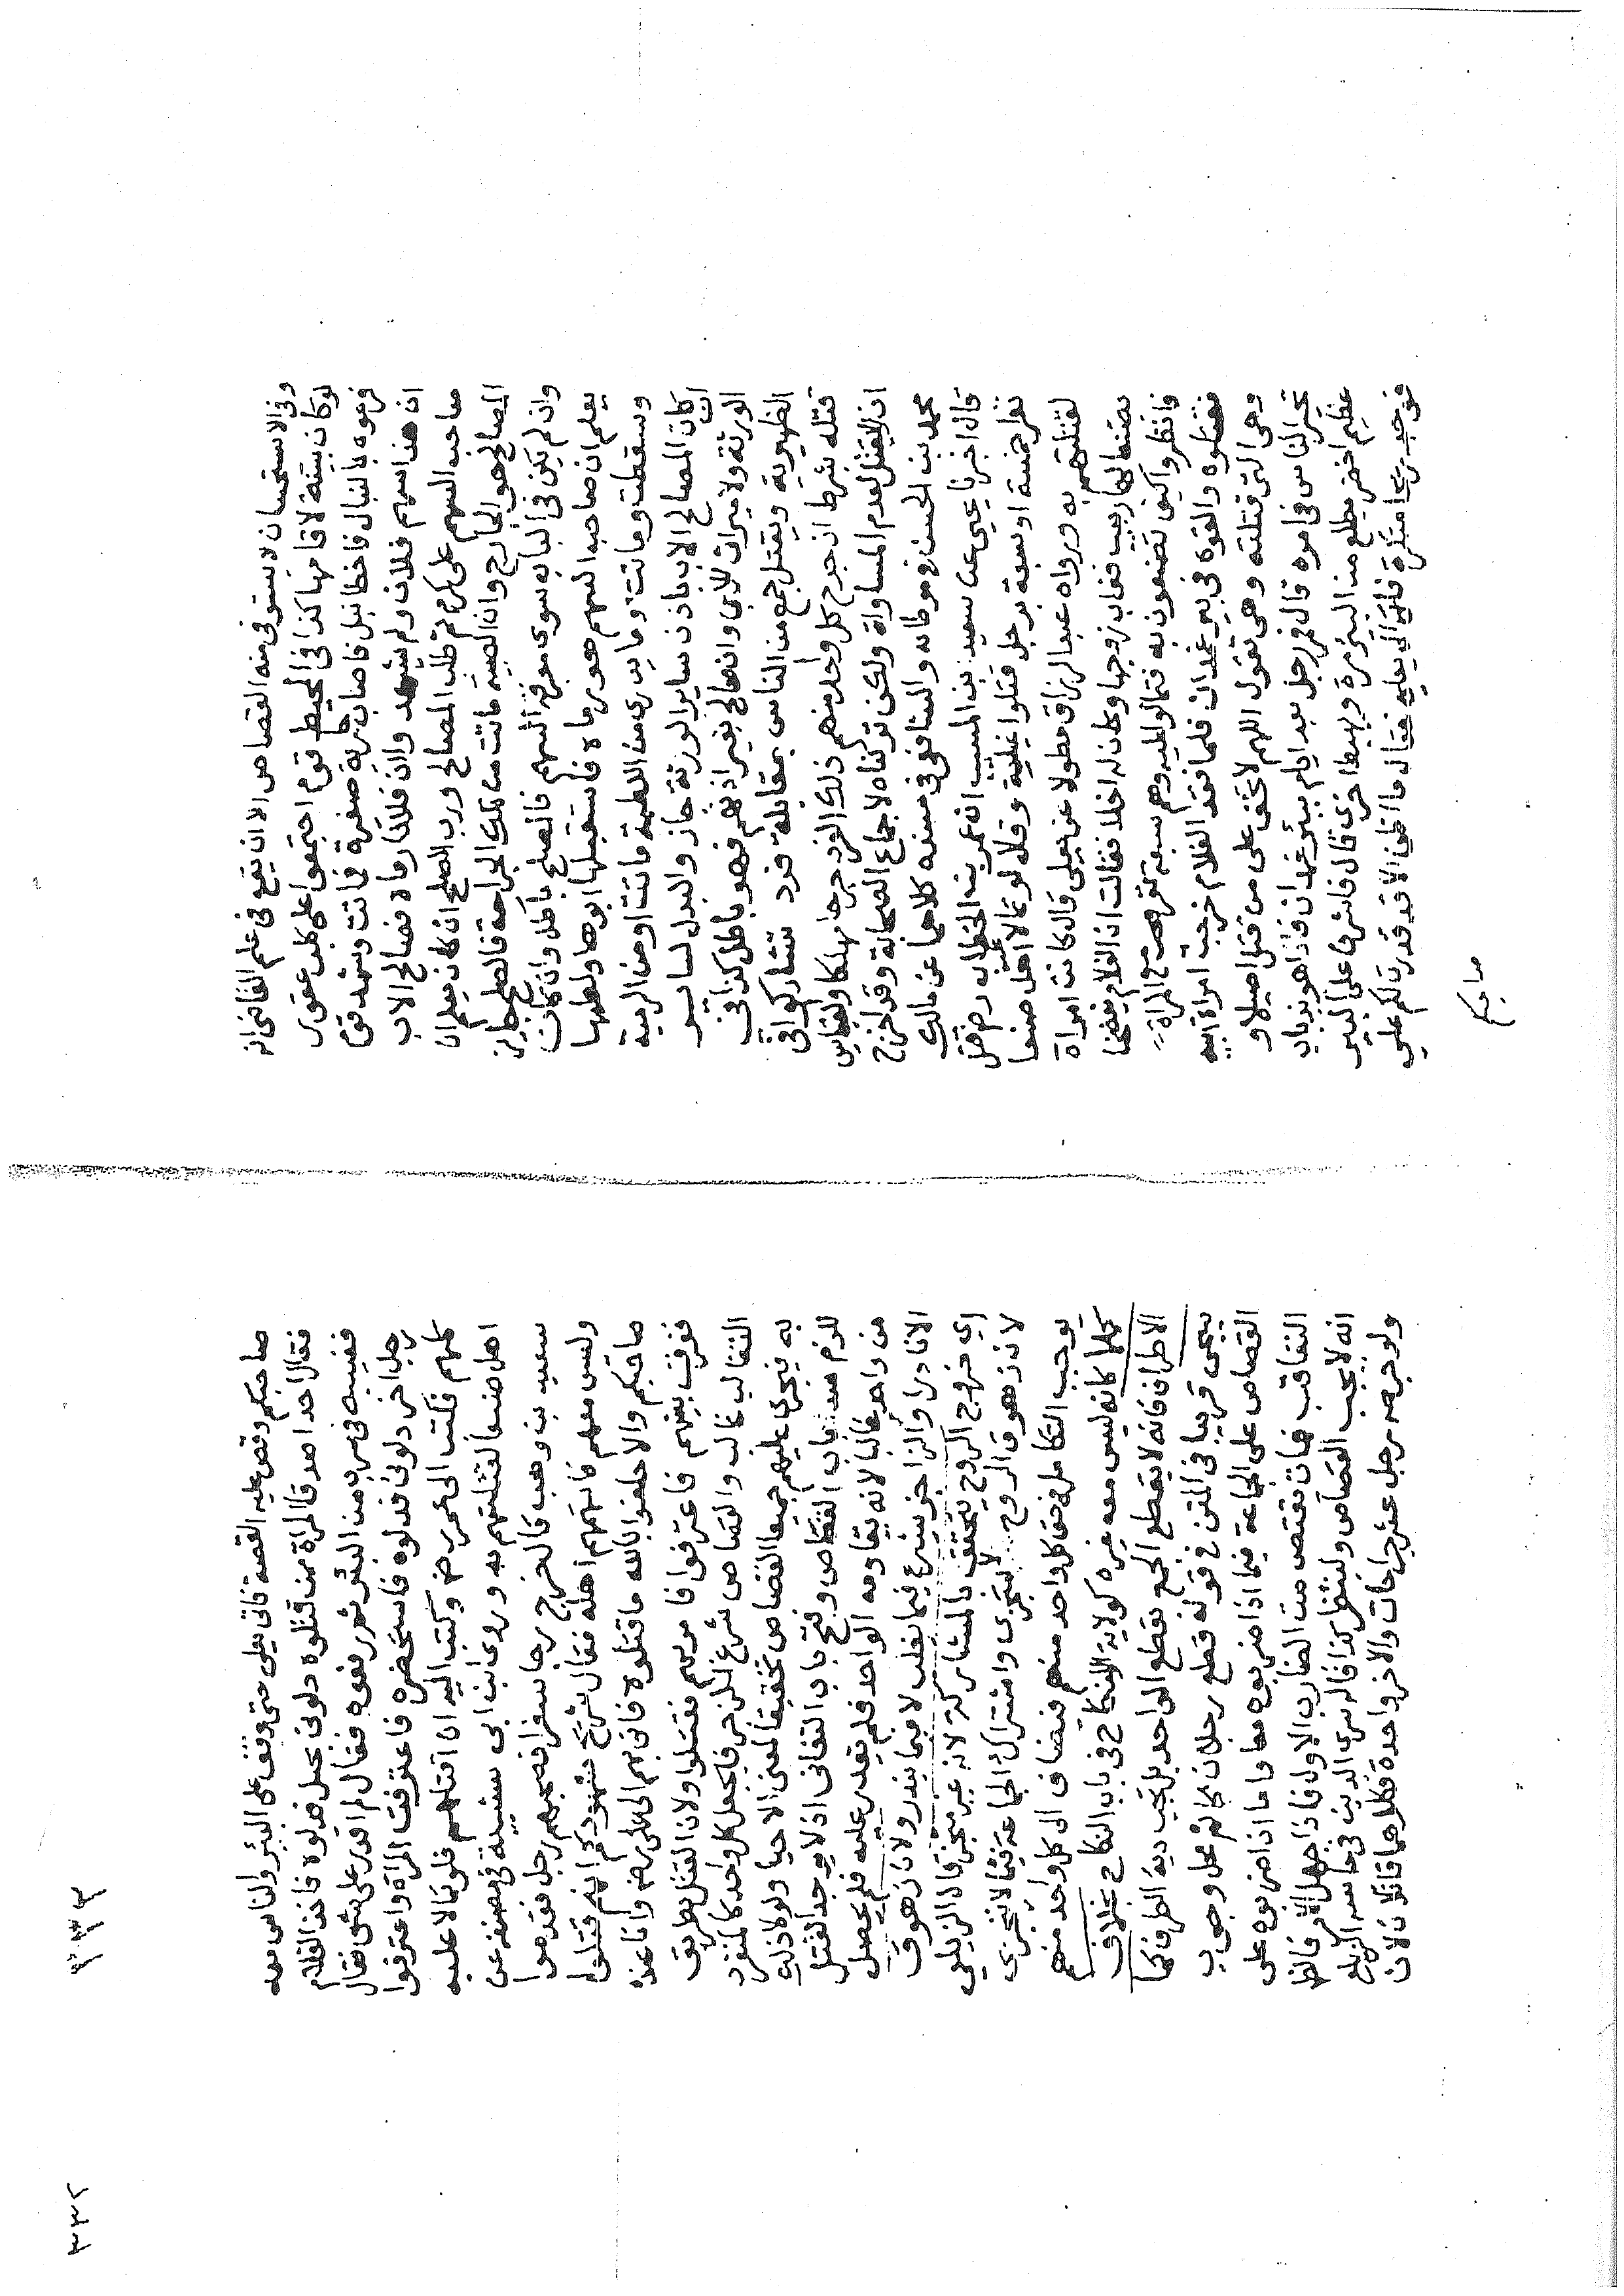 وفي الاستحسان لا يستوفى منه القصاص الا ان يقع في علم القاضي انه
لو كان بينة لاقامها كذا في المحيط قوم اجتمعوا على كلب عقور
فرموه بالنبال فاخطا نبل فاصاب جارية صغيرة فماتت وشهد قوم
ان هذا سهم فلان ولم يشهدوا ان فلانا رماه فصالح الاب
صاحب السهم على كرم ثم طلب المصالح ورب الصلح ان كان يعلم ان
المصالح هو الجارح وان الصبية ماتت من تلك الجراحة فالصلح جايز
وان لم يكن في الباب سوى معرفة السهم فالصلح باطل وان كانت
يعلم ان صاحب السهم هو رماه فاستقبلها ابوها ولطمها
وسقطت وماتت وما يدرى من اللطمة ماتت او من الرمية
ان كان المصالح الاب باذن ساير الورثة جاز والبدل لساير
الورثة ولا ميراث للاب وان صالح بغير اذنهم فهو باطل كذا في
الظهيرية ويقتل جمع من الناس بمقابلة فرد تشاركوا في
قتله بشرط ان جرح كل واحد منهم ذلك الفرد جرحا مهلكا والقياس
ان لا يقتل لعدم المساواة ولكن تركناه لاجماع الصحابة وقد اخرج
محمد بن الحسن في موطائه والشافعي في مسنده كلاهما عن مالك
قال اخبرنا يحيى عن سعيد بن المسيب ان عمر بن الخطاب رضي عنه قتل
نفرا خمسة او سبعة برجل قتلوا غيلة وقال لو تمالا اهل صنعا
لقتلتهم به ورواه عبد الرزاق مطولا عن يعلى قال كانت امراة
بصنعا لها ربيب فغاب زوجها وكان له اخلا فقالت ان الغلام يفضحنا
فانظروا كيف تصنعون به فتمالوا عليه وهم سبعة نفر مع المراة
فقتلوه والقوه في بير غمدان فلما فقد الغلام خرجت امراة ابيه
وهي التي قتلته وهي تقول اللهم لا تخف على من قتل اصيلا و
تحير الناس في امره قال فمر رجل بعد ايام ببئر غمدان فاذا هو بذباب
عظيم اخضر يطلع من البئر مرة ويهبط اخرى قال فاشرف على البير
فوجد ريحا منكرة فاتى الي يعلى فقال ما اظن الا قد قدرت لكم على
صاحبكم
صاحبكم وقص عليه القصة فاتى يعلى حتى وقف على البئر والناس معه
فقال احد اصدقا المراة ممن قتلوه دلوني بحبل فدلوه فاخذ الغلام
فغيبه في سرب من البئر ثم رفعوه فقال لم اقدر على شي فقال
رجل اخر دلوني فدلوه فاستخرجه فاعترفت المراة واعترفوا
كلهم فكتب الى عمر رض وكتب اليه ان اقتلهم فلو تمالا عليه
اهل صنعا لقتلتهم به وروى ابن ابي شيبة في مصنفه عن
سعيد بن وهب قال خرج رجال سفرا فصحبهم رجل فقدموا
وليس معهم فاتهمهم اهله فقال شريح شهودكم انهم قتلوا
صاحبكم والا حلفوا بالله ما قتلوه فاتى بهم الى علي رض وانا عنده
ففرق بينهم فاعترفوا فامر بهم فقتلوا ولان القتل بطريق
التغالب غالب والقصاص شرع للزجر فيجعل كل واحد كالمنفرد
به فيجري عليهم جميعا القصاص تحقيقا لمعنى الاحيا ولولا ذلك
للزم سد باب القصاص وفتح باب التفاني اذ لا يوجد القتل
من واحد غالبا لانه يقاومه الواحد فلم يقدر عليه فلم يحصل
الا نادرا والزاجر شرع فيما يغلب لا فيما يندر ولان زهوق
اي خروج الروح لا يتحقق بالمشاركة لانه غير متجز قاله الزيلعي
لان زهوق الروح لا يتجزى واشتراك الجماعة فيما لا يتجزى
يوجب التكامل في حق كل واحد منهم فيضاف الى كل واحد منهم
كملا كانه ليس معه غيره كولاية الانكاح في باب النكاح بخلاف
الاطراف فانه لا يقطع الجمع بقطع الواحد بل تجب دية الطرف كما
يجي قريبا في المتن في قوله قطع رجلان الخ ثم محل وجوب
القصاص على الجماعة فيما اذا ضربوه معا واما اذا ضربوه على
التعاقب فمات تقتص من الضارب الاول فاذا جهل الامر فالظاهر
انه لا يجب القصاص ولينظر كذا قاله سري الدين في حاشية الزيلعي
ولو جرحه رجل عشر جراحات والاخر واحدة فكلاهما قاتلان لان
٣٣٣
٣٣٢